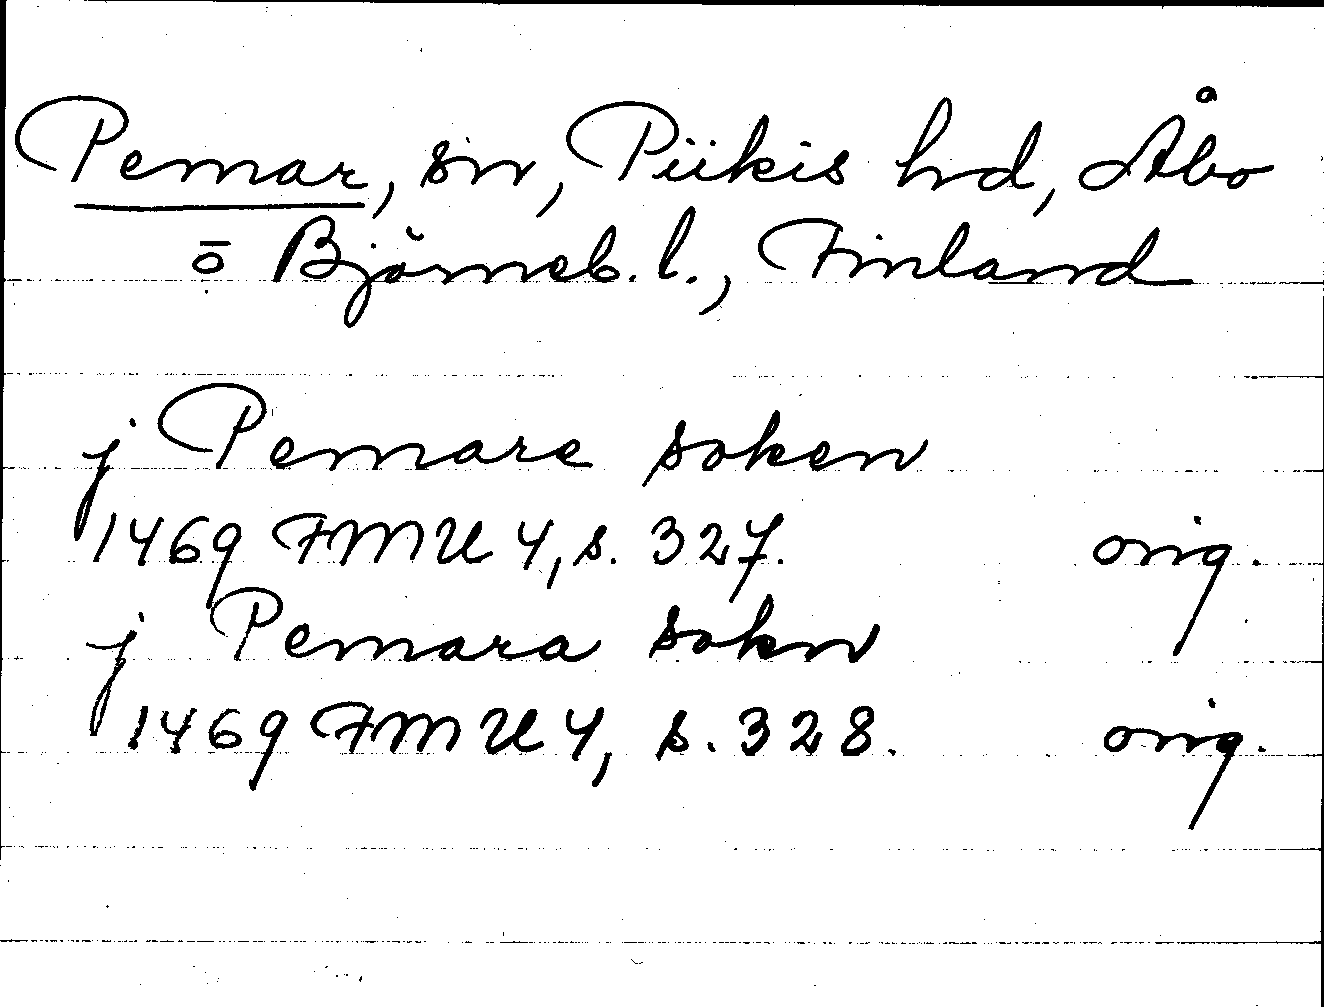 Pemar, sn, Piikis hd, Åbo
ō Björneb. l., Finland
j Pemare soken
1469 FMU 4, s. 327. orig.
j Pemara sokn
1469 FMU 4, s. 328. orig.